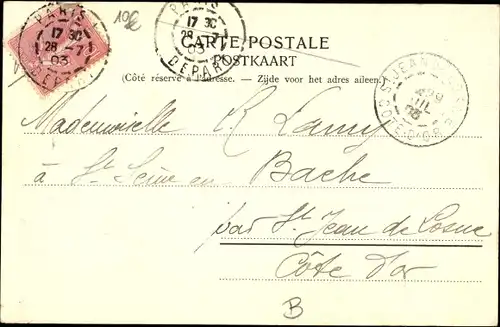 10c
PARIS
17 30
28 -7
03
DEPART
PARIS
17 30
28 -7
03
DEPART
CARTE POSTALE
POSTKAART
(Côté réservé à l'adresse. - Zijde voor het adres alleen.)
ST JEAN
03
COTE-D'OR
Mademoiselle R. Lamy
à St Seine en
Bache
par St Jean de Losne
Côte d'or
B